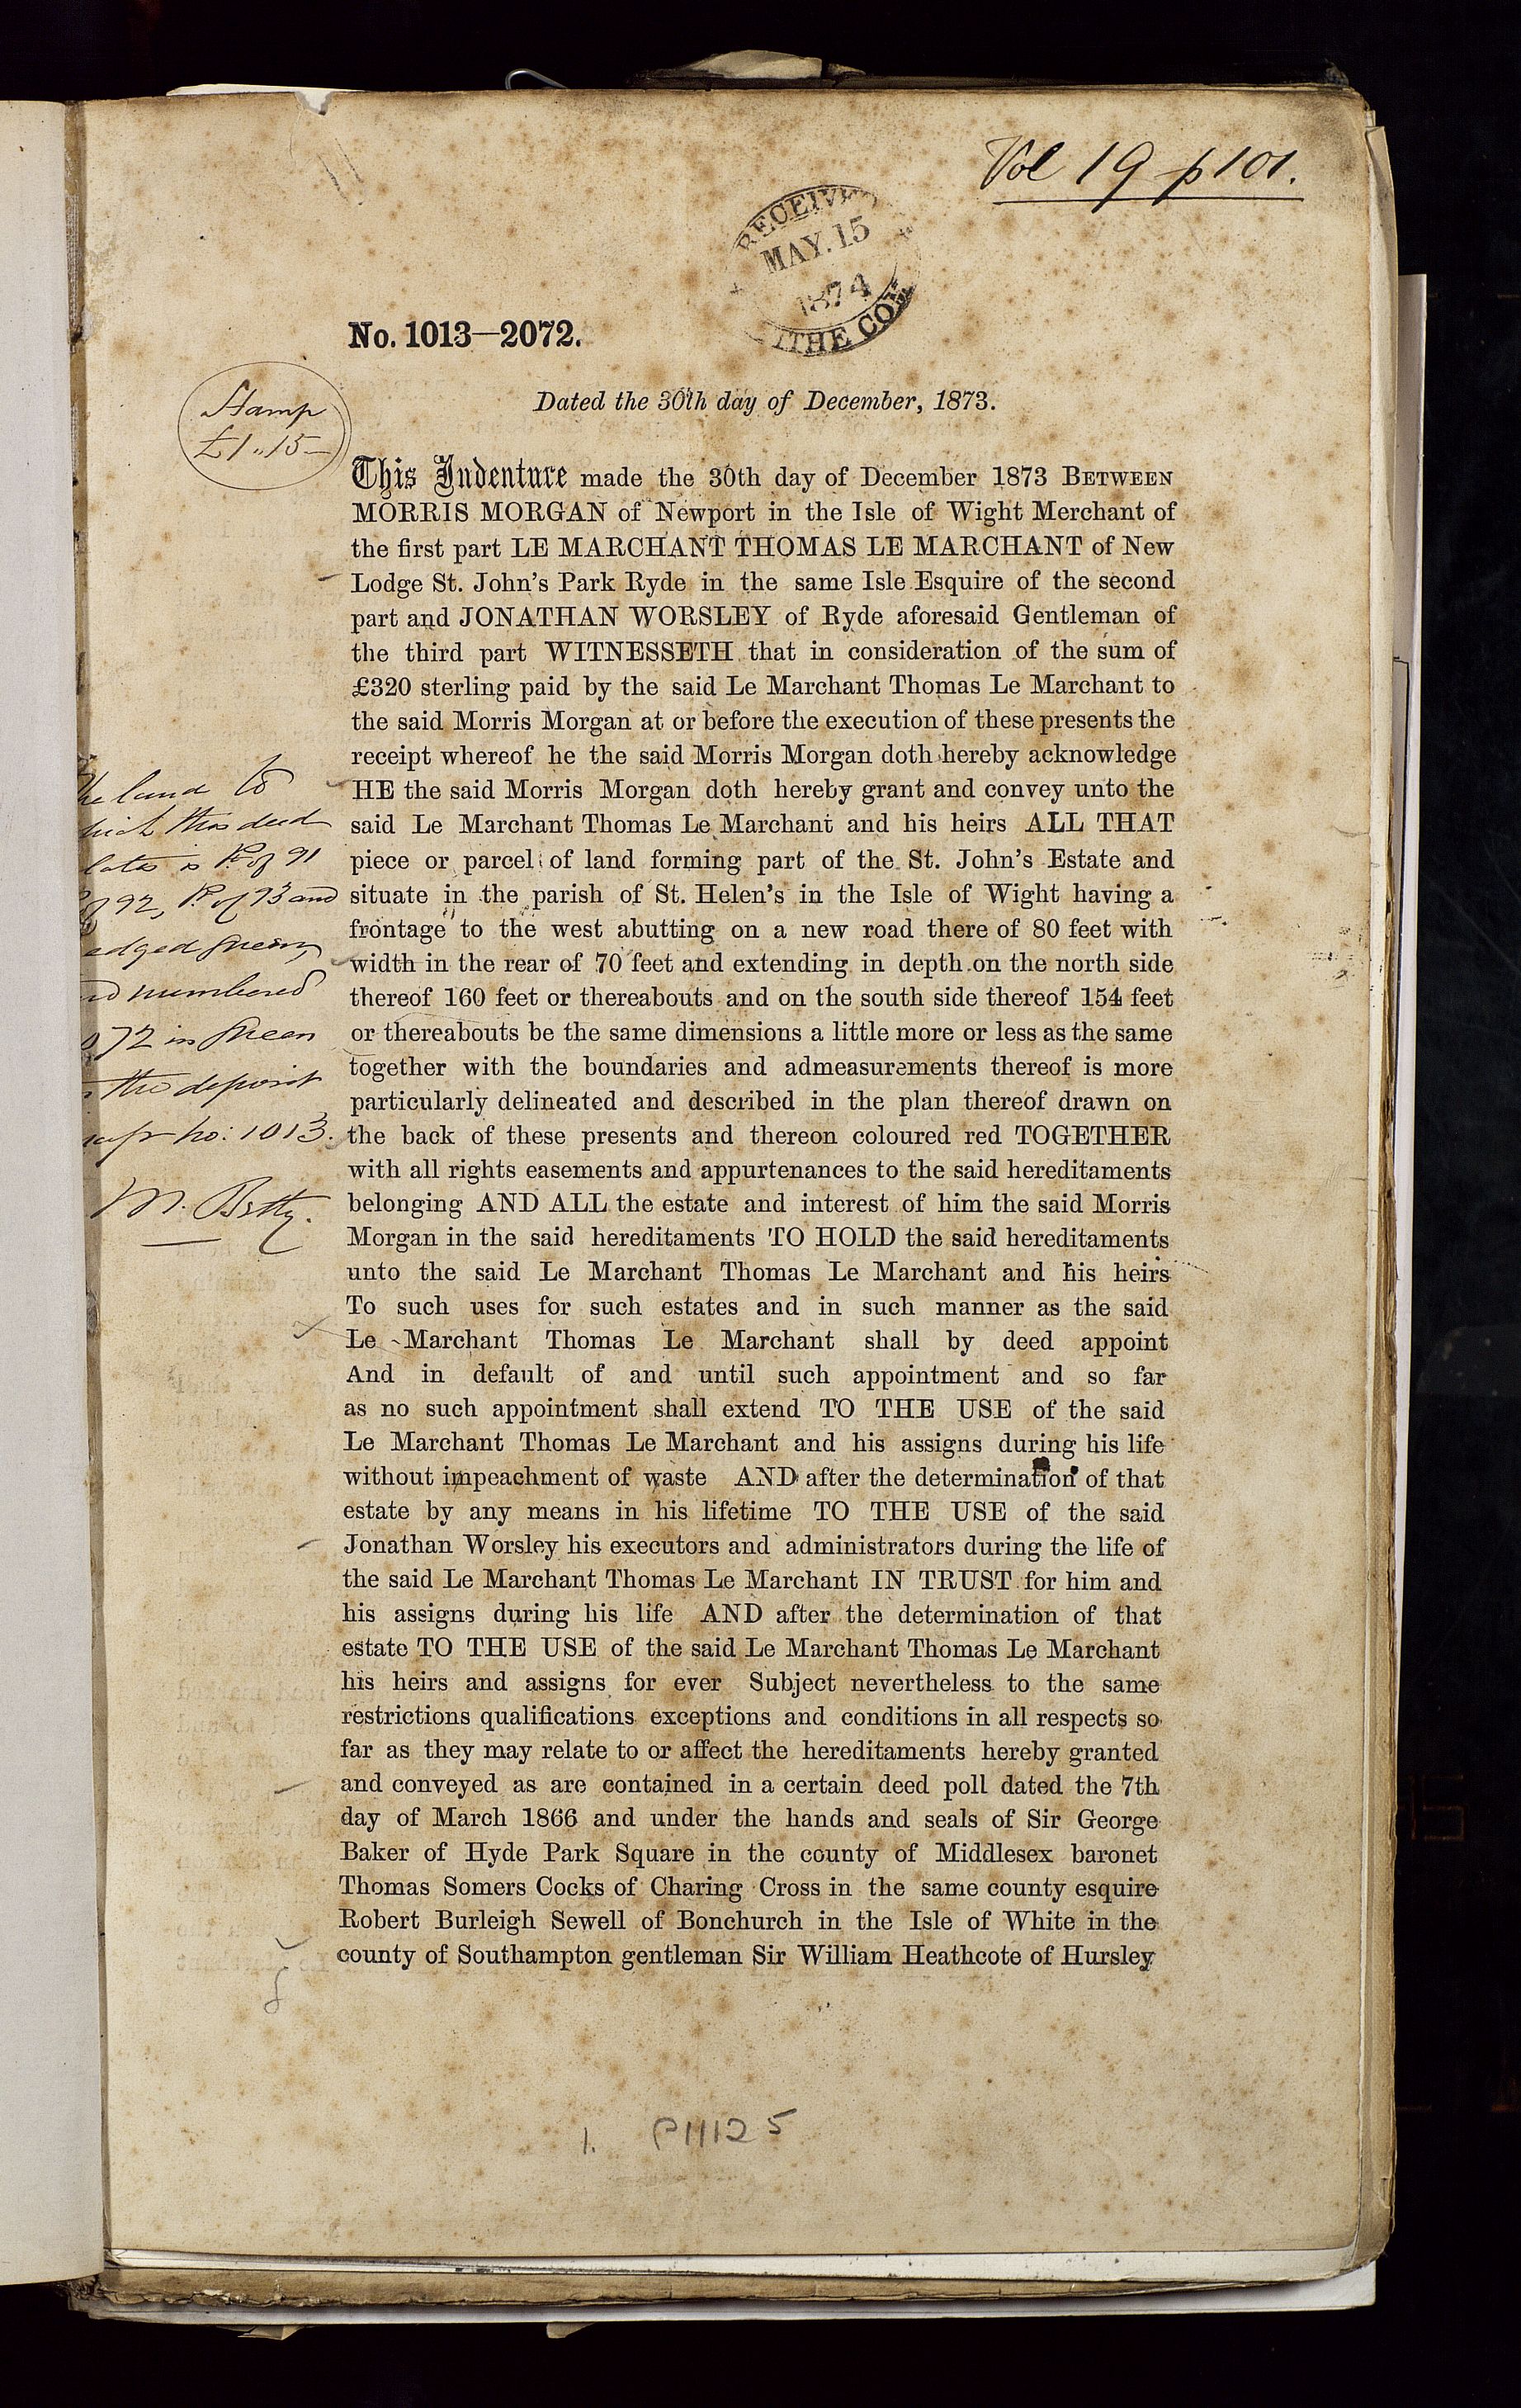 Vol 19 p 101.
RECEIVED
MAY. 15
1874
TITHE COM
No. 1013—2072.
Stamp
£1..15—
Dated the 30th day of December, 1873.
This Indenture made the 30th day of December 1873 BETWEEN
MORRIS MORGAN of Newport in the Isle of Wight Merchant of
the first part LE MARCHANT THOMAS LE MARCHANT of New
Lodge St. John's Park Ryde in the same Isle Esquire of the second
part and JONATHAN WORSLEY of Ryde aforesaid Gentleman of
the third part WITNESSETH that in consideration of the sum of
£320 sterling paid by the said Le Marchant Thomas Le Marchant to
the said Morris Morgan at or before the execution of these presents the
receipt whereof he the said Morris Morgan doth hereby acknowledge
HE the said Morris Morgan doth hereby grant and convey unto the
said Le Marchant Thomas Le Marchant and his heirs ALL THAT
piece or parcel of land forming part of the St. John's Estate and
situate in the parish of St. Helen's in the Isle of Wight having a
frontage to the west abutting on a new road there of 80 feet with
width in the rear of 70 feet and extending in depth on the north side
thereof 160 feet or thereabouts and on the south side thereof 154 feet
or thereabouts be the same dimensions a little more or less as the same
together with the boundaries and admeasurements thereof is more
particularly delineated and described in the plan thereof drawn on
the back of these presents and thereon coloured red TOGETHER
with all rights easements and appurtenances to the said hereditaments
belonging AND ALL the estate and interest of him the said Morris
Morgan in the said hereditaments TO HOLD the said hereditaments
unto the said Le Marchant Thomas Le Marchant and his heirs
To such uses for such estates and in such manner as the said
Le Marchant Thomas Le Marchant shall by deed appoint
And in default of and until such appointment and so far
as no such appointment shall extend TO THE USE of the said
Le Marchant Thomas Le Marchant and his assigns during his life
without impeachment of waste AND after the determination of that
estate by any means in his lifetime TO THE USE of the said
Jonathan Worsley his executors and administrators during the life of
the said Le Marchant Thomas Le Marchant IN TRUST for him and
his assigns during his life AND after the determination of that
estate TO THE USE of the said Le Marchant Thomas Le Marchant
his heirs and assigns for ever Subject nevertheless to the same
restrictions qualifications exceptions and conditions in all respects so
far as they may relate to or affect the hereditaments hereby granted
and conveyed as are contained in a certain deed poll dated the 7th
day of March 1866 and under the hands and seals of Sir George
Baker of Hyde Park Square in the county of Middlesex baronet
Thomas Somers Cocks of Charing Cross in the same county esquire
Robert Burleigh Sewell of Bonchurch in the Isle of White in the
county of Southampton gentleman Sir William Heathcote of Hursley
he land to
hich this deed
lates is Pt of 91
of 92, Pt of 93 and
edged green,
nd numbered
072 in green
the deposit
map no: 1013.
M. Betty.
1. P1112 5